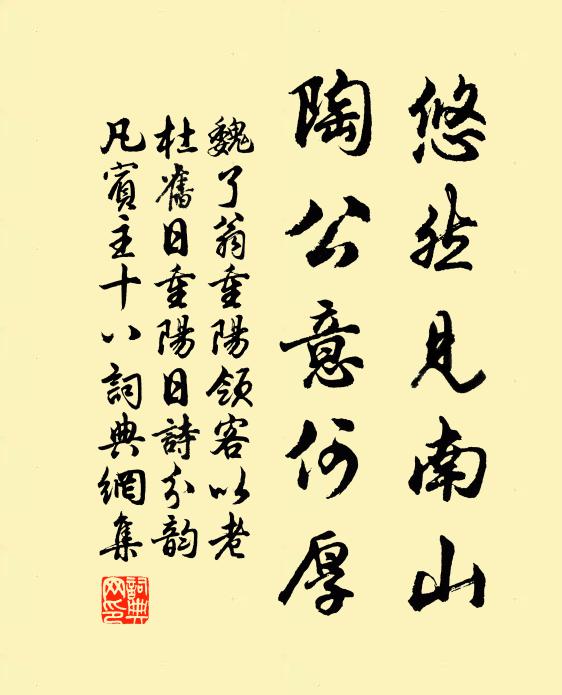 悠然見南山
陶公意何厚
魏了翁重陽領客以老
杜舊日重陽日詩分韵
凡賓主十八詞典網集
詞典网印